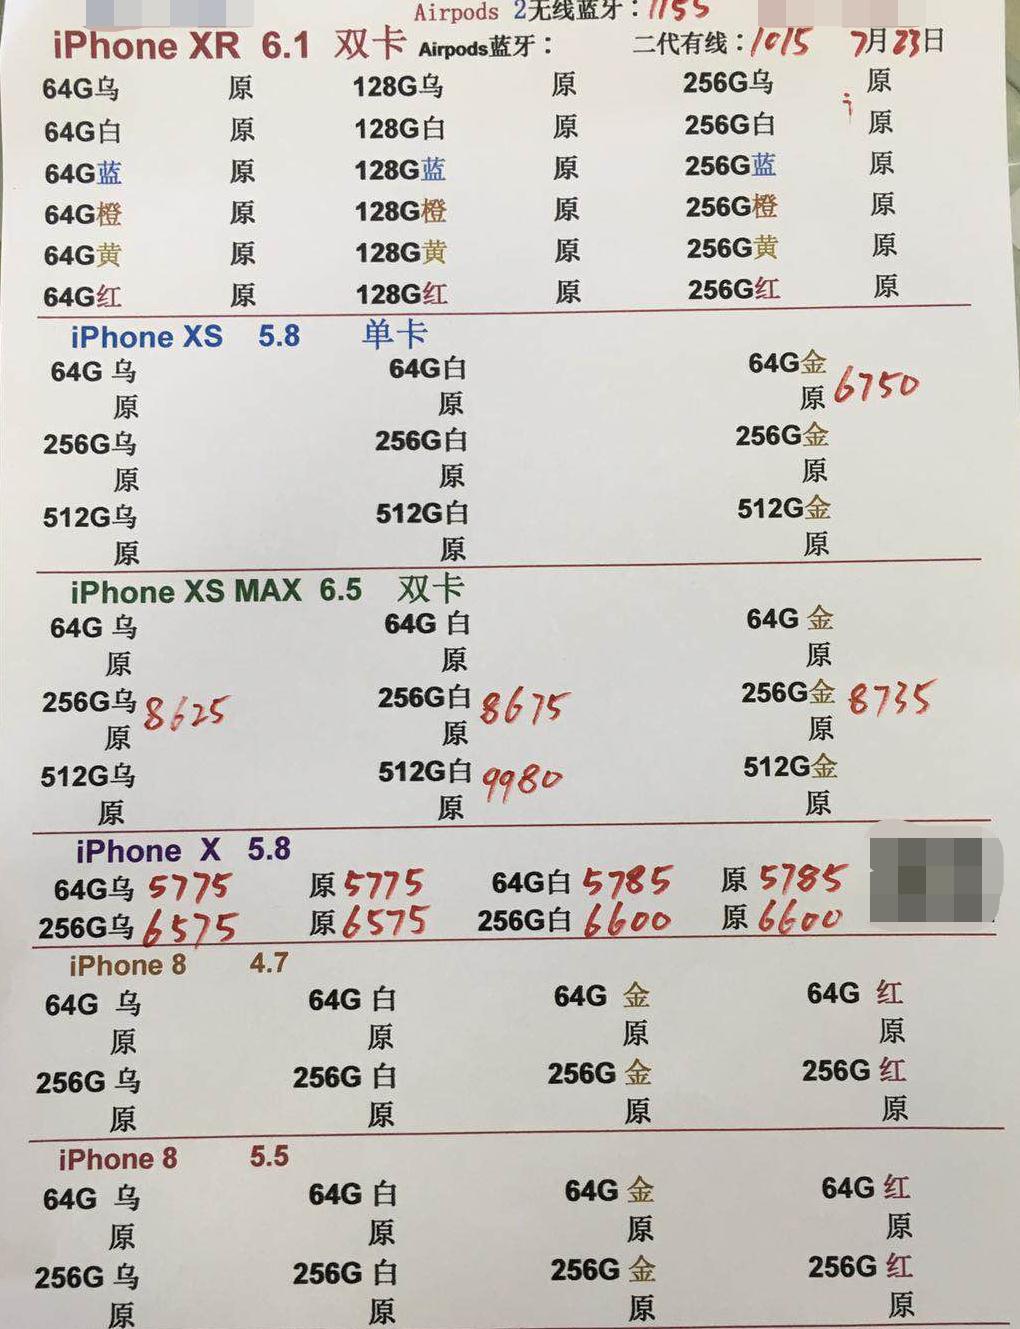 Airpods 2无线蓝牙：1155
iPhone XR 6.1 双卡 Airpods蓝牙： 二代有线：1015 7月23日
64G乌 原 128G乌 原 256G乌 原
64G白 原 128G白 原 256G白 原
64G蓝 原 128G蓝 原 256G蓝 原
64G橙 原 128G橙 原 256G橙 原
64G黄 原 128G黄 原 256G黄 原
64G红 原 128G红 原 256G红 原
iPhone XS 5.8 单卡
64G 乌 64G白 64G金
原 原 原 6750
256G乌 256G白 256G金
原 原 原
512G乌 512G白 512G金
原 原 原
iPhone XS MAX 6.5 双卡
64G 乌 64G 白 64G 金
原 原 原
256G乌 8625 256G白 8675 256G金 8735
原 原 原
512G乌 512G白 9980 512G金
原 原 原
iPhone X 5.8
64G乌 5775 原 5775 64G白 5785 原 5785
256G乌 6575 原 6575 256G白 6600 原 6600
iPhone 8 4.7
64G 乌 64G 白 64G 金 64G 红
原 原 原 原
256G 乌 256G 白 256G 金 256G 红
原 原 原 原
iPhone 8 5.5
64G 乌 64G 白 64G 金 64G 红
原 原 原 原
256G 乌 256G 白 256G 金 256G 红
原 原 原 原